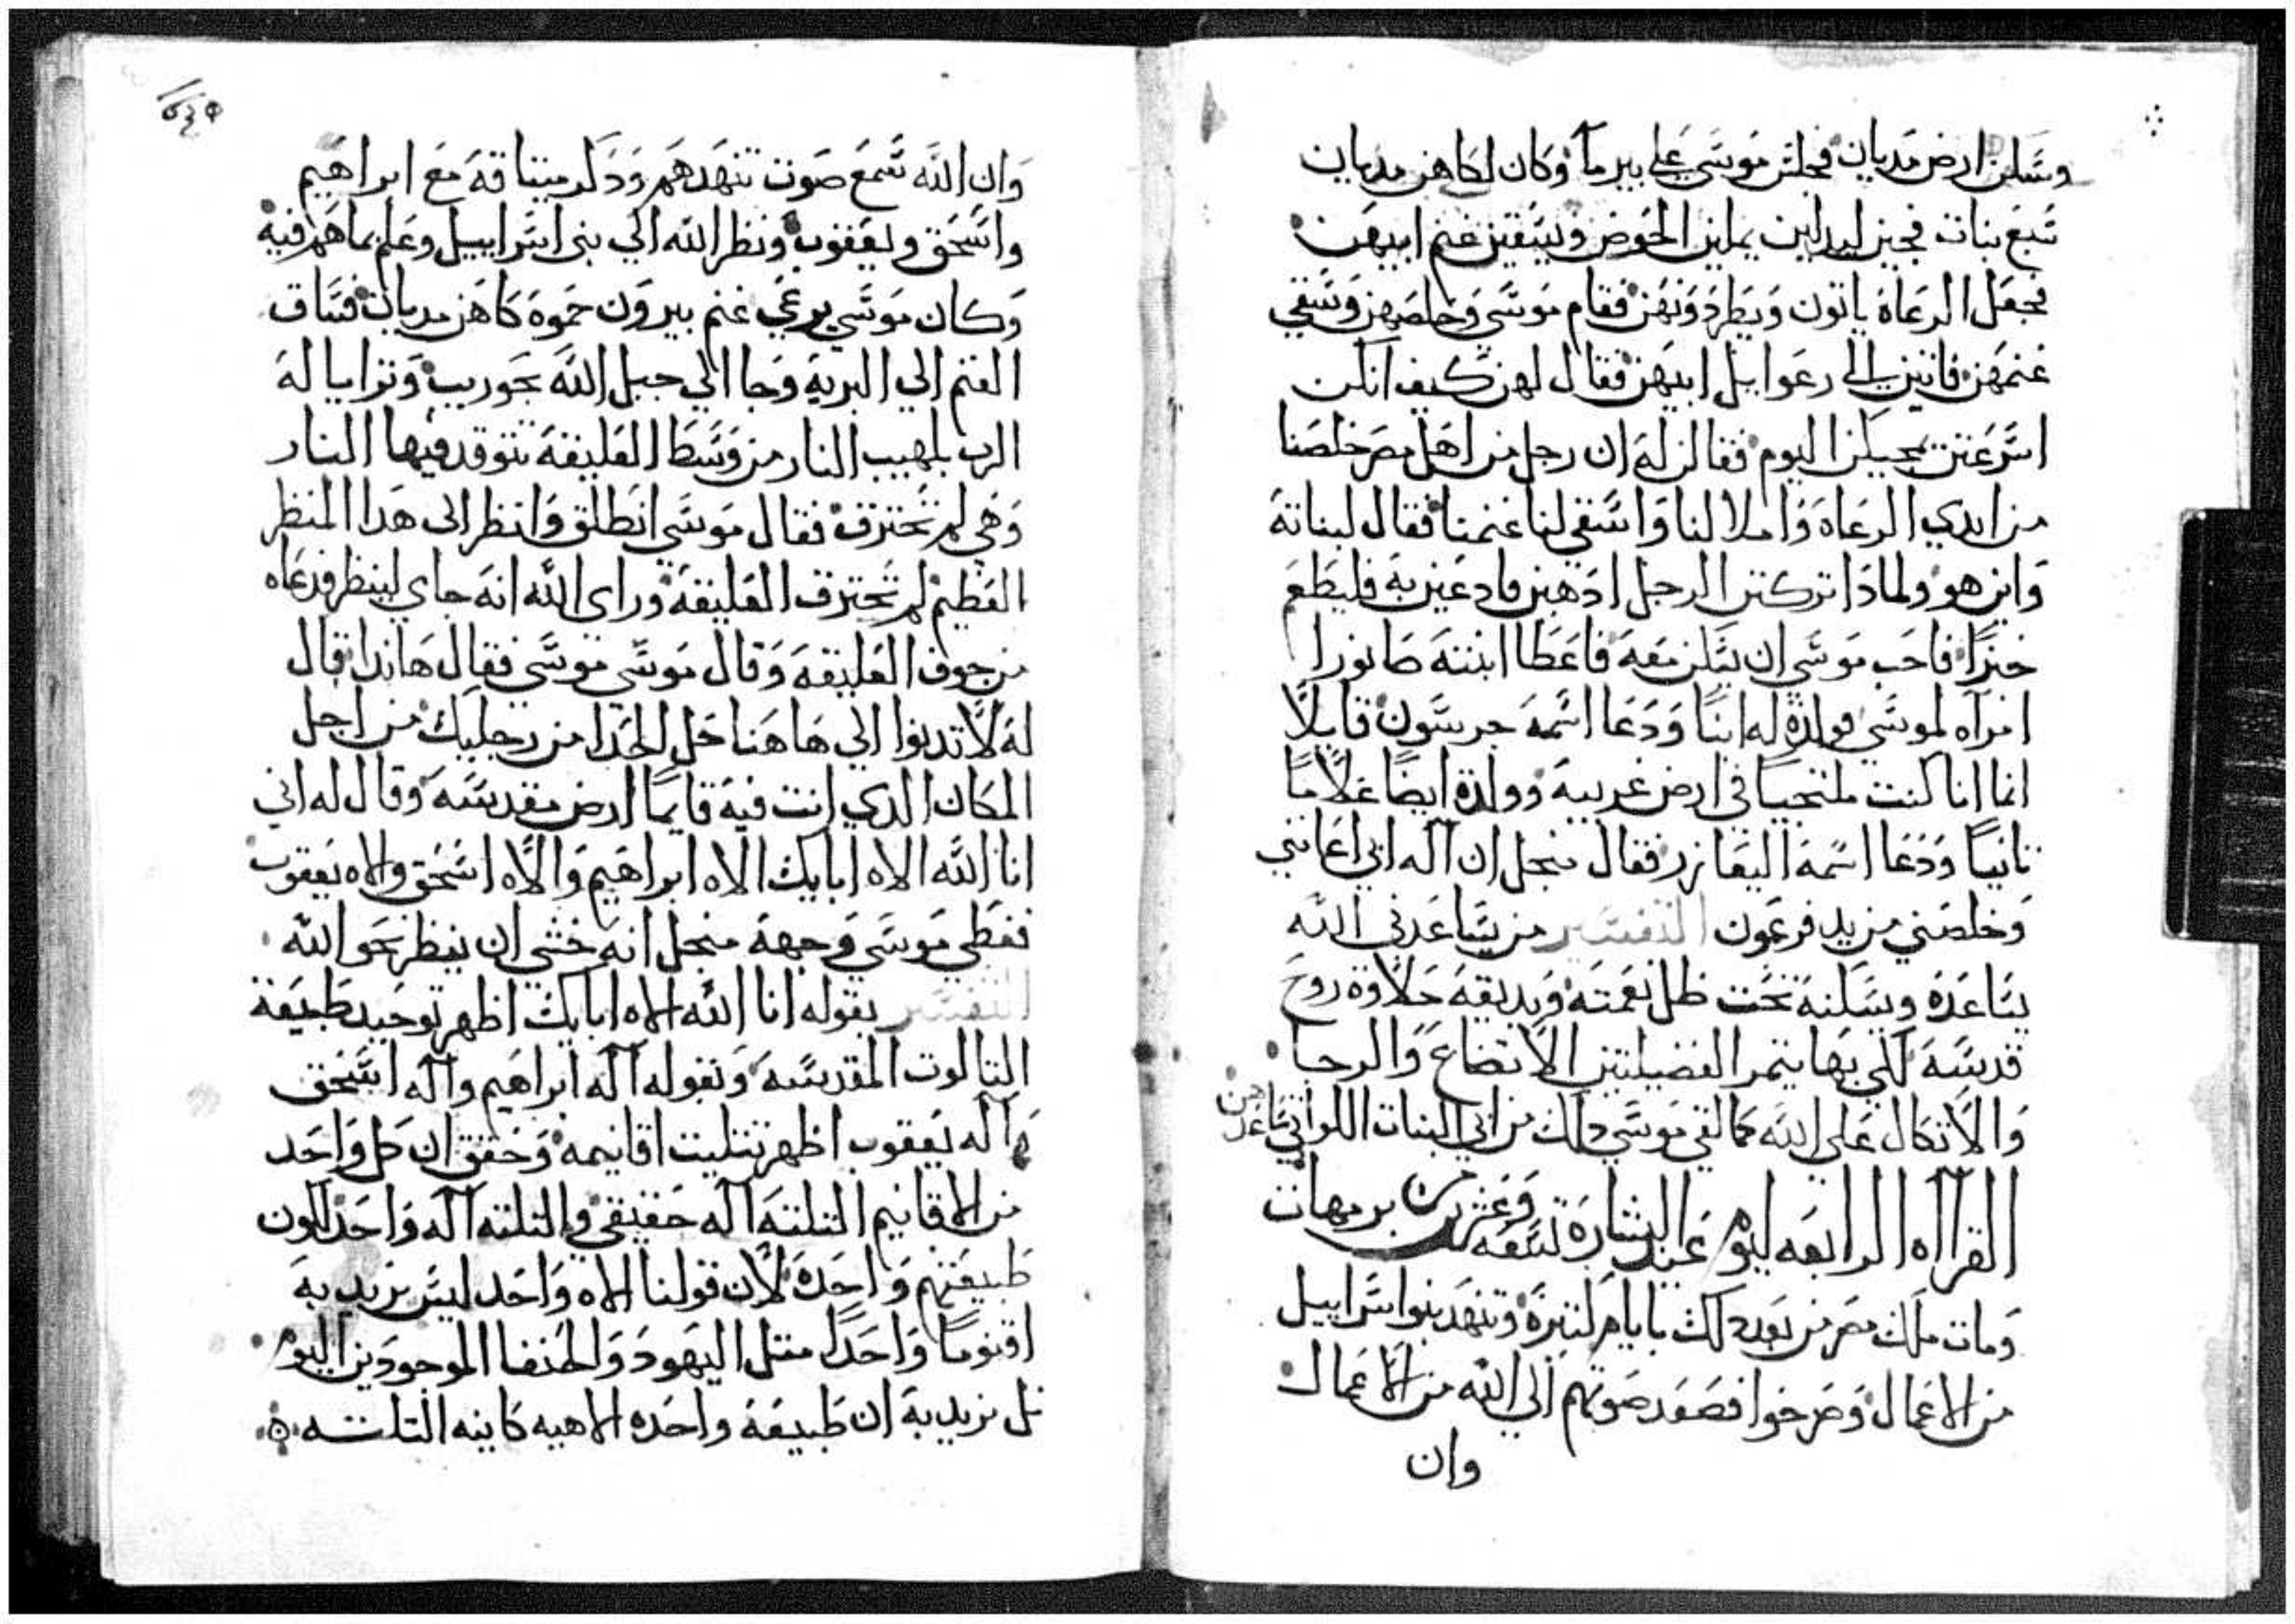 وسكن ارض مديان فجلس موسي علي بير ما وكان لكاهن مديان
سبع بنات فجين ليدلين يملين الحوض ويسقين غنم ابيهن
فجعل الرعاة ياتون ويطردونهن فقام موسي وخلصهن وسقي
غنمهن فاتين الي رعوايل ابيهن فقال لهن كيف انكن
اسرعتن بمجيكن اليوم فقالن له ان رجل من اهل مصر خلصنا
من ايدي الرعاة واملا لنا واسقي لنا غنمنا فقال لبناته
واين هو ولمادا تركتن الرجل ادهبن فادعين به فليطعم
خبزا فاحب موسي ان يسكن معه فاعطا ابنته صانورا
امراه لموسي فولدة له ابنا ودعا اسمه جرسون قايلا
انما انا كنت ملتجيا في ارض غريبة وولدة ايضا غلاما
تانيا ودعا اسمه اليعازر فقال منجل ان اله ابي اعانني
وخلصني من يد فرعون التفسير من يساعدني الله
يساعده ويسكنه تحت ظل نعمته ويديقه حلاوة روح
قدسه لكي بها يتمر الفضيلتين الاتضاع والرجا
والاتكال علي الله كما لقي موسي دلك من اتي البنات اللواتي ساعدهن
القرااه الرابعه ليوم عيد البشارة لتسعه وعشرين برمهات
ومات ملك مصر من بعد دلك بايام كتيرة وتنهد بنوا اسراييل
من الاعمال وصرخوا فصعد صوتهم الي الله من الاعمال
وان
وان الله سمع صوت تنهدهم ودكر ميتاقه مع ابراهيم
واسحق ويعقوب ونظر الله الي بني اسراييل وعلم بما هم فيه
وكان موسي يرعي غنم بيرون حموه كاهن مديان فساق
الغنم الي البرية وجا الي جبل الله بحوريب وترايا له
الرب بلهيب النار من وسط العليقة تتوقد فيها النار
وهي لم تحترق فقال موسي انطلق وانظر الى هدا المنظر
العظيم لم تحترق العليقة وراى الله انه جاي لينظر فدعاه
من جوف العليقة وقال موسي موسي فقال هاندا قال
له لا تدنوا الي هاهنا حل الحدا من رجليك من اجل
المكان الدي انت فيه قايما ارض مقدسة وقال له اني
انا الله الاه ابايك الاه ابراهيم والاه اسحق والاه يعقوب
فغطي موسي وجهه منجل انه خشي ان ينظر نحو الله
التفسير بقوله انا الله الاه ابايك اظهر توحيد طبيعة
التالوت المقدسة وبقوله اله ابراهيم واله اسحق
واله يعقوب اظهر تتليت اقانيمه وحقق ان كل واحد
من الاقانيم التلتة اله حقيقي والتلته اله واحد لكون
طبيعتهم واحدة لان قولنا الاه واحد ليس نريد به
اقنوما واحدا متل اليهود والحنفا الموجودين اليوم
بل نريد به ان طبيعة واحده الاهيه كاينه التلتة